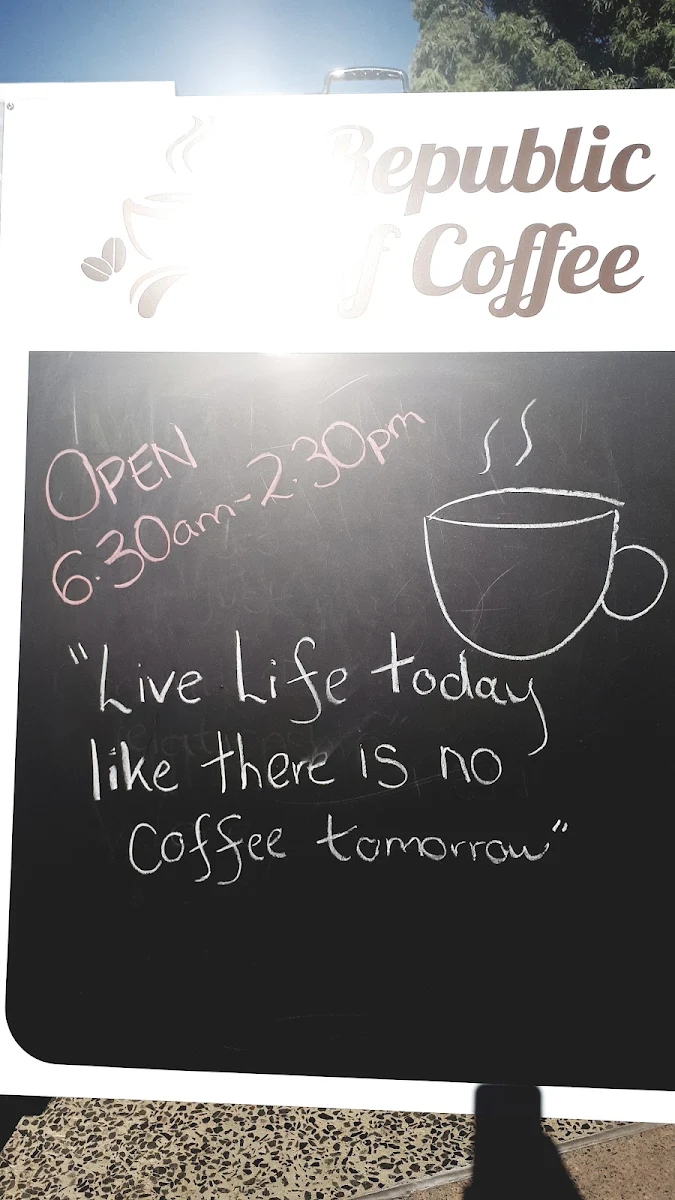 Republic
of Coffee
OPEN
6.30am-2.30pm
"Live Life today
like there is no
Coffee tomorrow"